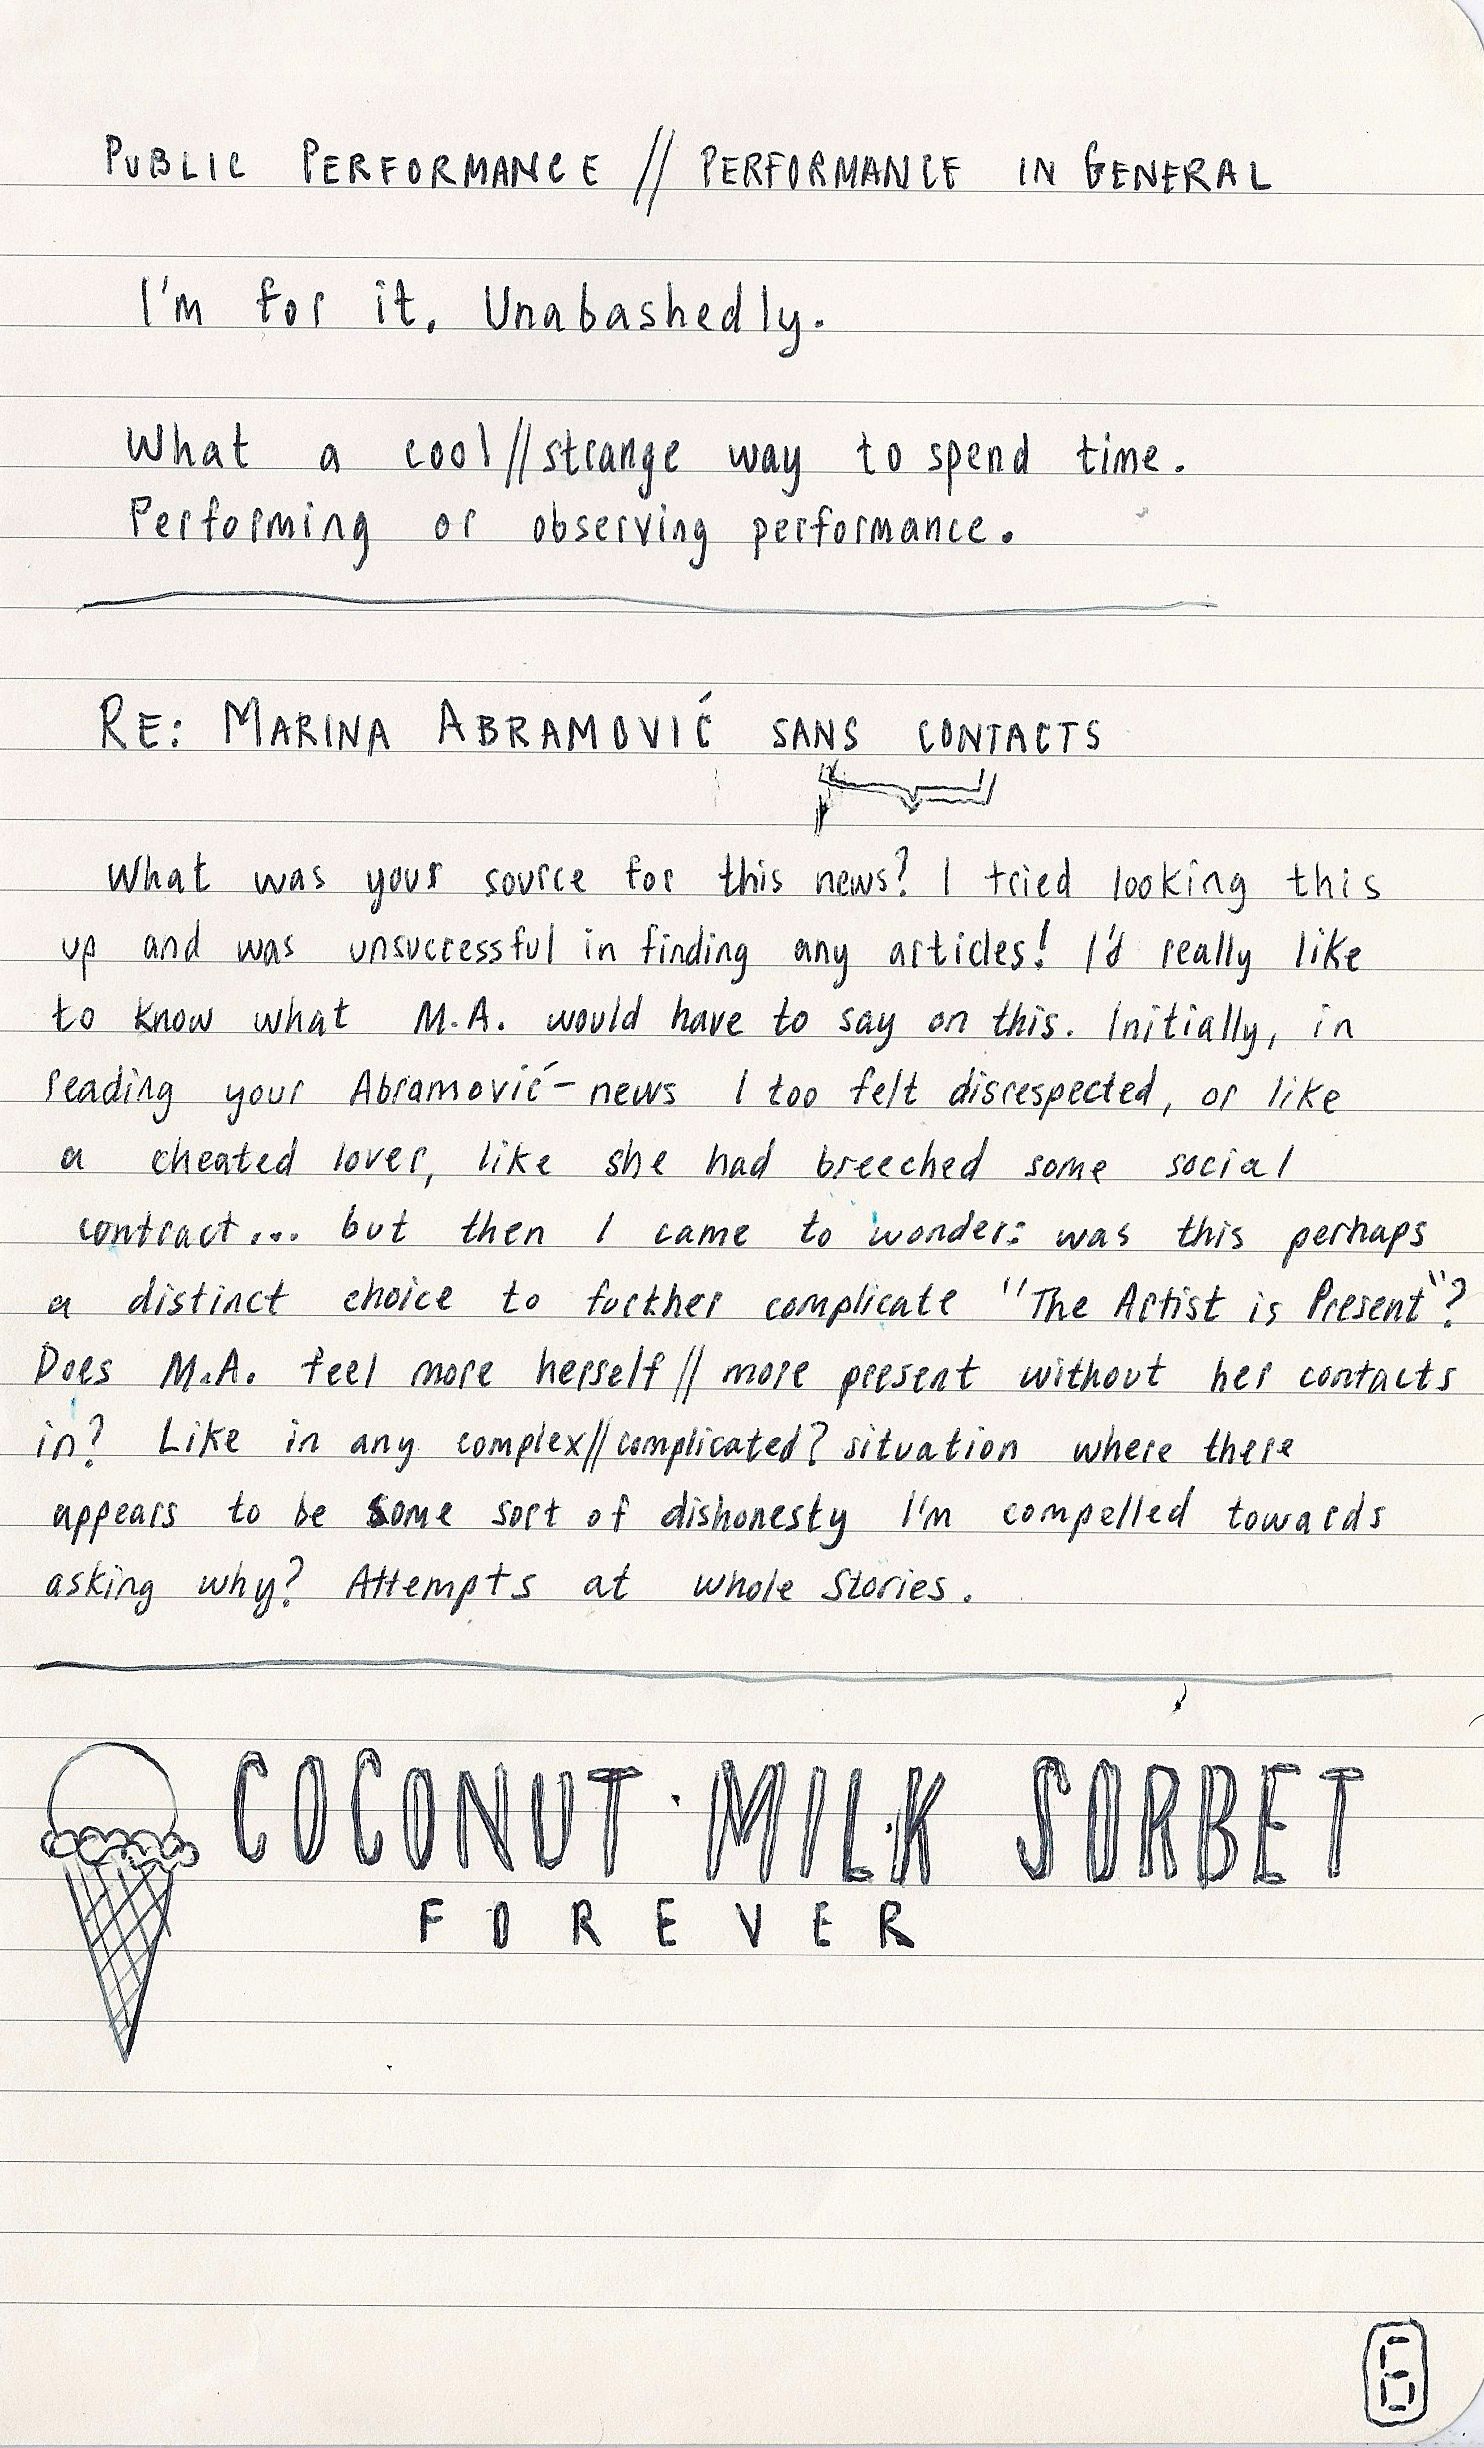 PUBLIC PERFORMANCE // PERFORMANCE IN GENERAL
I'm for it. Unabashedly.
What a cool//strange way to spend time.
Performing or observing performance.
RE: MARINA ABRAMOVIĆ SANS CONTACTS
What was your source for this news? I tried looking this
up and was unsuccessful in finding any articles! I'd really like
to know what M.A. would have to say on this. Initially, in
reading your Abramović-news I too felt disrespected, or like
a cheated lover, like she had breeched some social
contract... but then I came to wonder: was this perhaps
a distinct choice to further complicate "The Artist is Present"?
Does M.A. feel more herself // more present without her contacts
in? Like in any complex//complicated? situation where there
appears to be some sort of dishonesty I'm compelled towards
asking why? Attempts at whole stories.
COCONUT·MILK SORBET
FOREVER
6